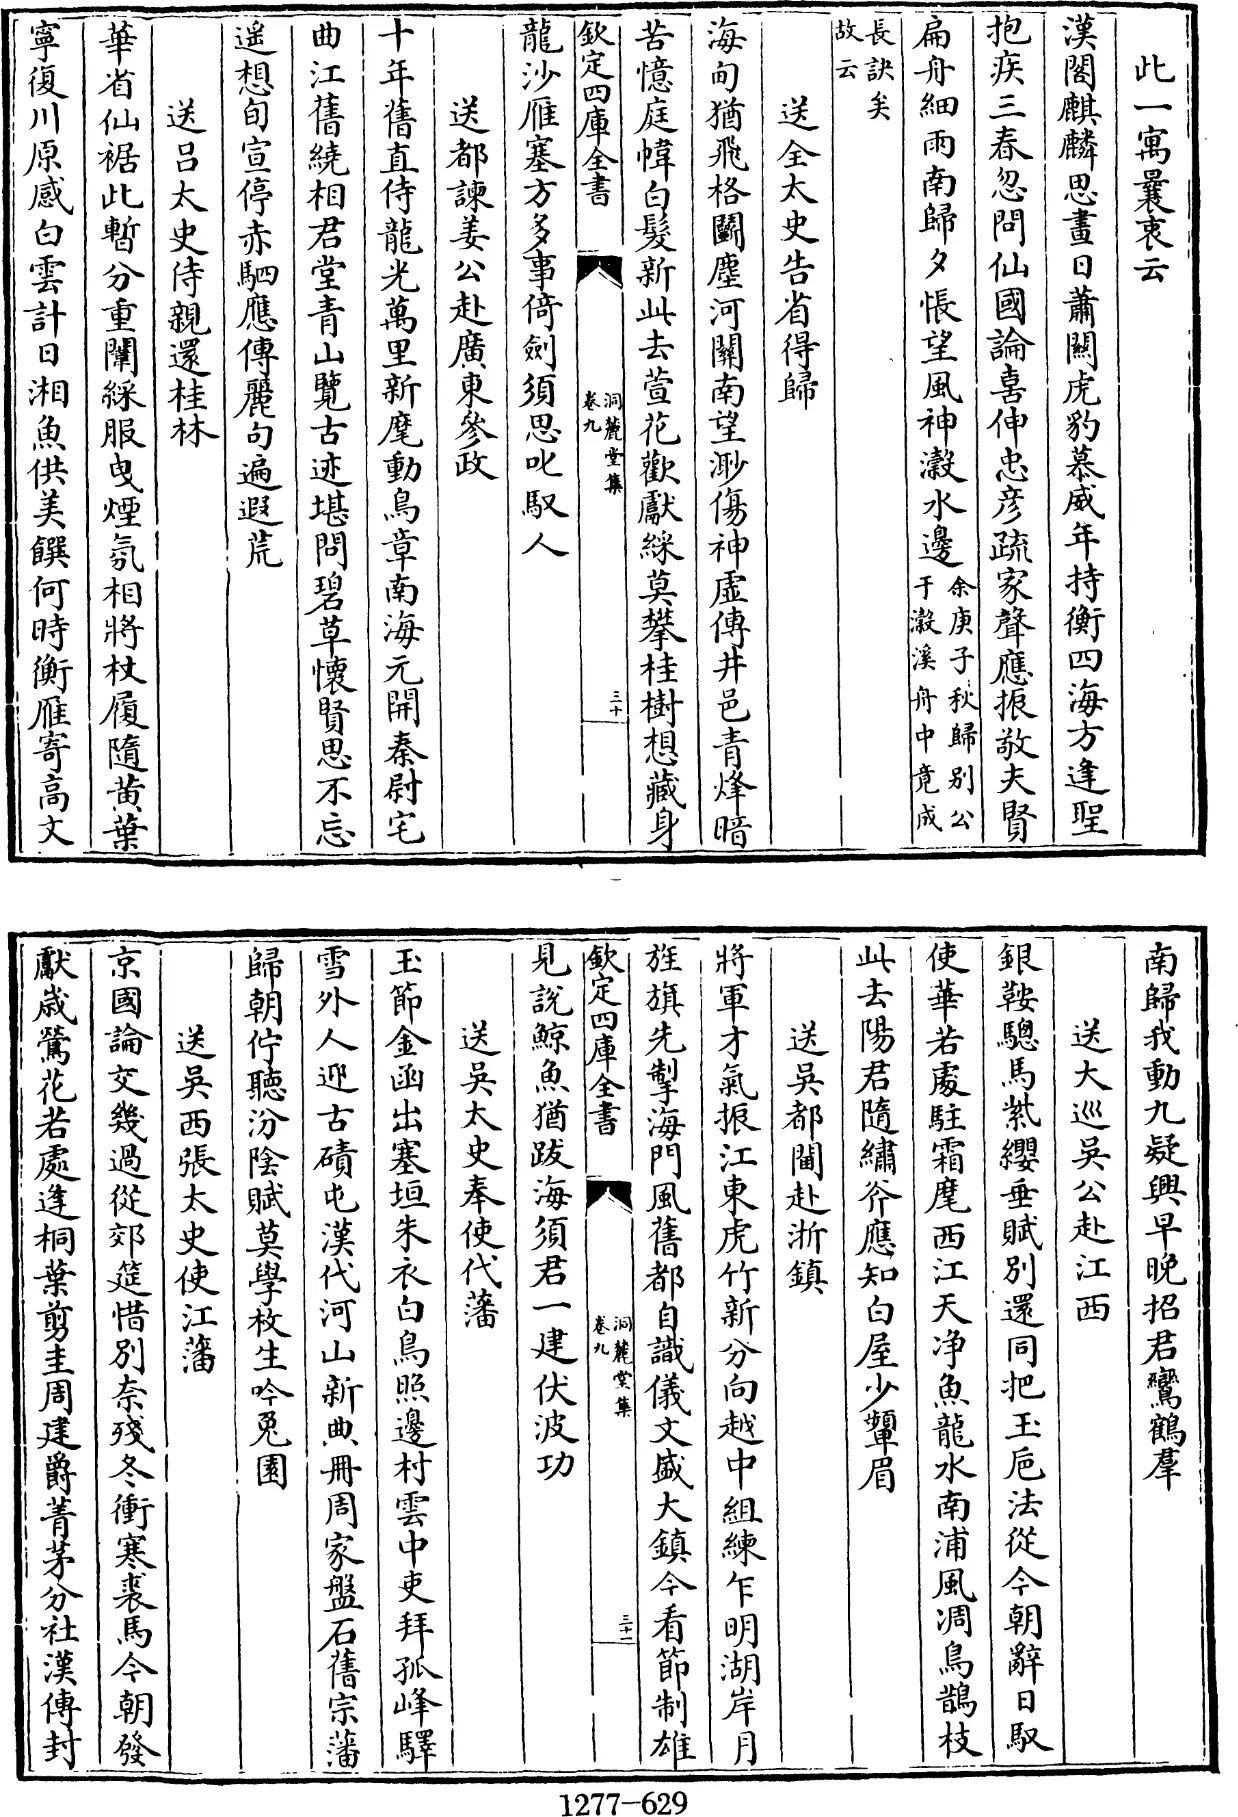 此一寓曩衷云
漢閣麒麟思畫日蕭關虎豹慕威年持衡四海方逢聖
抱疾三春忽問仙國論喜伸忠彦疏家聲應振敬夫賢
扁舟細雨南歸夕悵望風神瀫水邊余庚子秋歸别公
于瀫溪舟中竟成
長訣矣
故云
送全太史告省得歸
海甸猶飛格鬭塵河關南望渺傷神虛傳井邑青烽暗
苦憶庭幃白髮新此去萱花歡獻綵莫攀桂樹想藏身
欽定四庫全書
洞麓堂集
卷九
三十
龍沙雁塞方多事倚劍須思叱馭人
送都諫姜公赴廣東參政
十年舊直侍龍光萬里新麾動鳥章南海元開秦尉宅
曲江舊繞相君堂青山覽古迹堪問碧草懷賢思不忘
遥想旬宣停赤駟應傳麗句遍遐荒
送吕太史侍親還桂林
華省仙裾此暫分重闈綵服曳煙氛相將杖履隨黄葉
寧復川原感白雲計日湘魚供美饌何時衡雁寄高文
南歸我動九疑興早晚招君鸞鶴羣
送大巡吳公赴江西
銀鞍驄馬紫纓垂賦别還同把玉巵法從今朝辭日馭
使華若處駐霜麾西江天浄魚龍水南浦風凋鳥鵲枝
此去陽君隨繡斧應知白屋少顰眉
送吳都閫赴浙鎮
將軍才氣振江東虎竹新分向越中組練乍明湖岸月
旌旗先掣海門風舊都自識儀文盛大鎮今看節制雄
欽定四庫全書
洞麓堂集
卷九
三十一
見說鯨魚猶跋海須君一建伏波功
送吳太史奉使代藩
玉節金函出塞垣朱衣白鳥照邊村雲中吏拜孤峰驛
雪外人迎古磧屯漢代河山新典冊周家盤石舊宗藩
歸朝佇聽汾陰賦莫學枚生吟兎園
送吳西張太史使江藩
京國論交幾過從郊筵惜别奈殘冬衝寒裘馬今朝發
獻歲鶯花若處逢桐葉剪圭周建爵菁茅分社漢傳封
1277-629